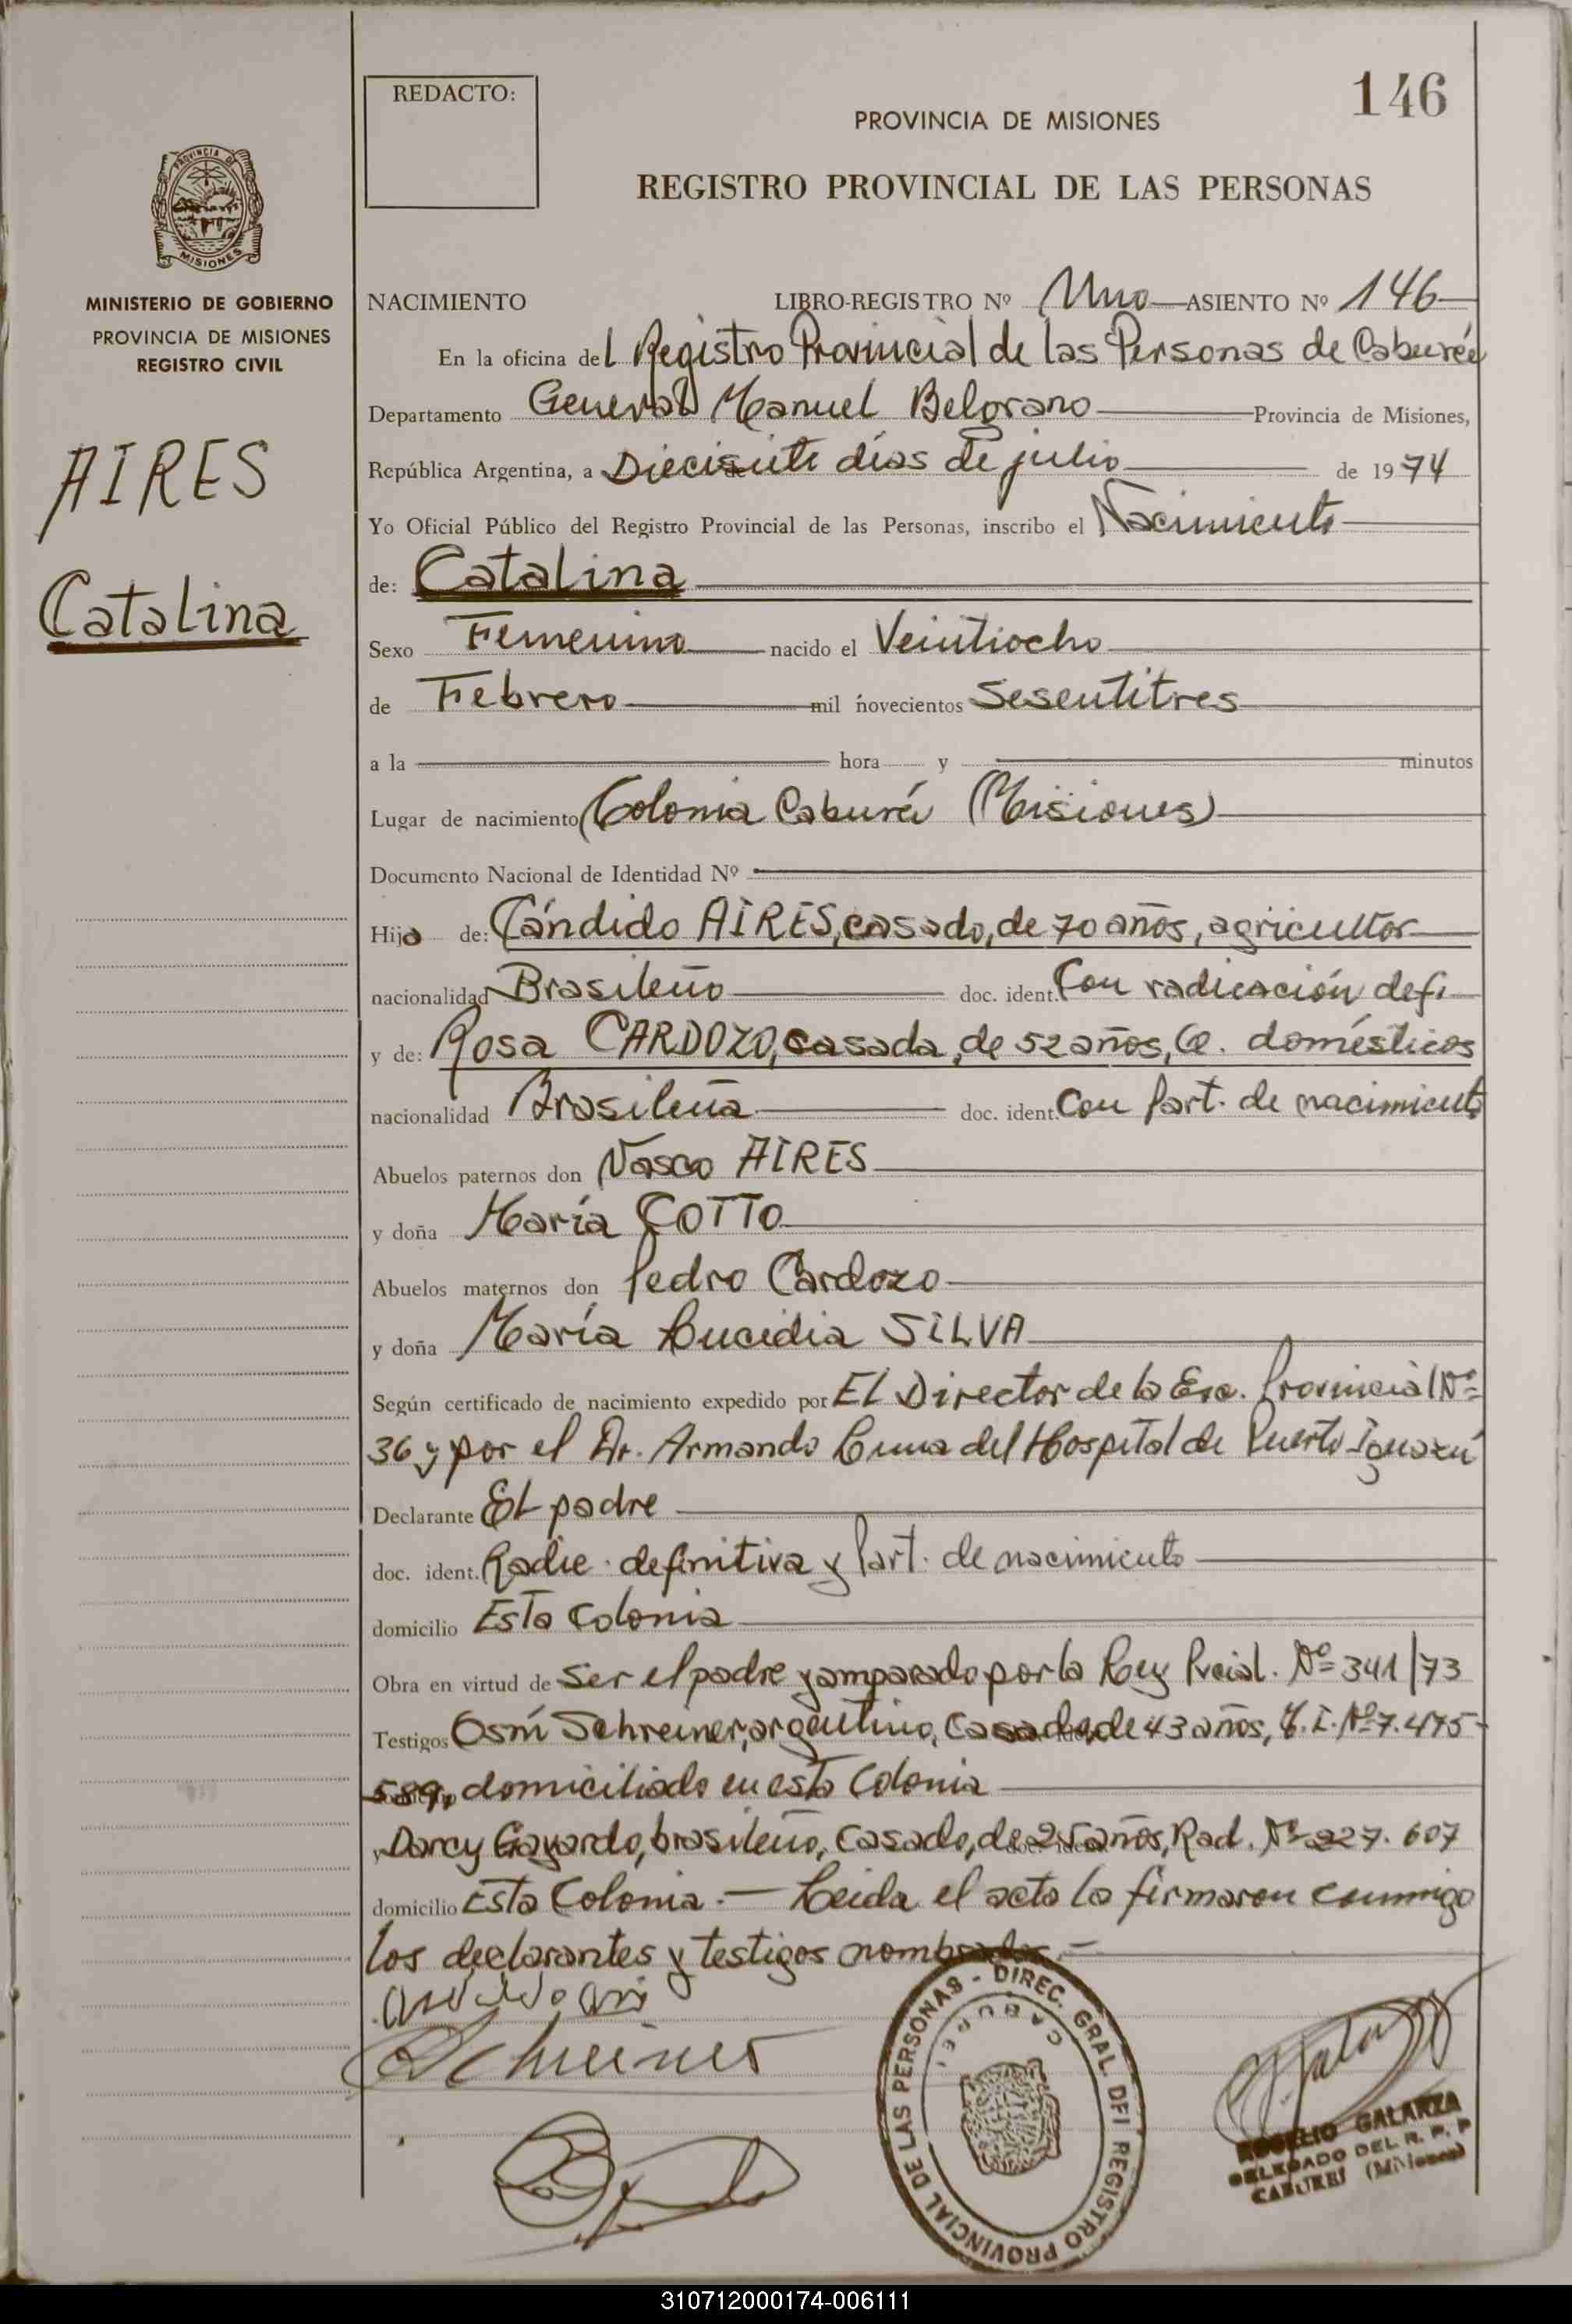 REDACTO:
146
PROVINCIA DE MISIONES
REGISTRO PROVINCIAL DE LAS PERSONAS
PROVINCIA DE
MISIONES
MINISTERIO DE GOBIERNO
PROVINCIA DE MISIONES
REGISTRO CIVIL
AIRES
Catalina
NACIMIENTO LIBRO-REGISTRO Nº Uno ASIENTO Nº 146
En la oficina del Registro Provincial de las Personas de Caburéi
Departamento General Manuel Belgrano Provincia de Misiones,
República Argentina, a Diecisiete días de julio de 1974
Yo Oficial Público del Registro Provincial de las Personas, inscribo el Nacimiento
de: Catalina
Sexo Femenino nacido el Veintiocho
de Febrero mil novecientos Sesentitres
a la hora y minutos
Lugar de nacimiento Colonia Caburéi (Misiones)
Documento Nacional de Identidad Nº
Hija de: Cándido AIRES, casado, de 70 años, agricultor
nacionalidad Brasileño doc. ident. Con radicación defi
y de: Rosa CARDOZO, casada, de 52 años, Q. domésticos
nacionalidad Brasileña doc. ident. Con Part. de nacimiento
Abuelos paternos don Vasco AIRES
y doña María COTTO
Abuelos maternos don Pedro Cardozo
y doña María Lucidia SILVA
Según certificado de nacimiento expedido por El Director de la Esc. Provincial Nº
36 y por el Dr. Armando Luna del Hospital de Puerto Iguazú
Declarante El padre
doc. ident. Radic. definitiva y Part. de nacimiento
domicilio Esta Colonia
Obra en virtud de ser el padre y amparado por la Ley Pvcial. Nº 341/73
Testigos Osmí Schreiner, argentino, Casado, de 43 años, M.I. Nº 7.475-
589, domiciliado en esta Colonia
y Darcy Gayardo, brasileño, Casado, de 25 años, Rad. Nº 227.607
domicilio Esta Colonia.— Leida el acta la firmaron conmigo
los declarantes y testigos nombrados.—
Schreiner
DIREC. GRAL. DEL REGISTRO PROVINCIAL DE LAS PERSONAS -
CABUREI
ROGELIO GALARZA
DELEGADO DEL R. P. P
CABUREI (Misiones)
310712000174-006111